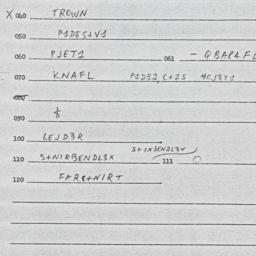 X 040 TROWN
050 P1DES+V1
060 PJET1 061 - QBAPLFL
070 KNAFL P1D31,C+1S 4CJ3Y1
080
090 $
100 LEJD3R
110 S+NIRBENDL3X S+1XBENDL3X 111
120 FARS+NIRT